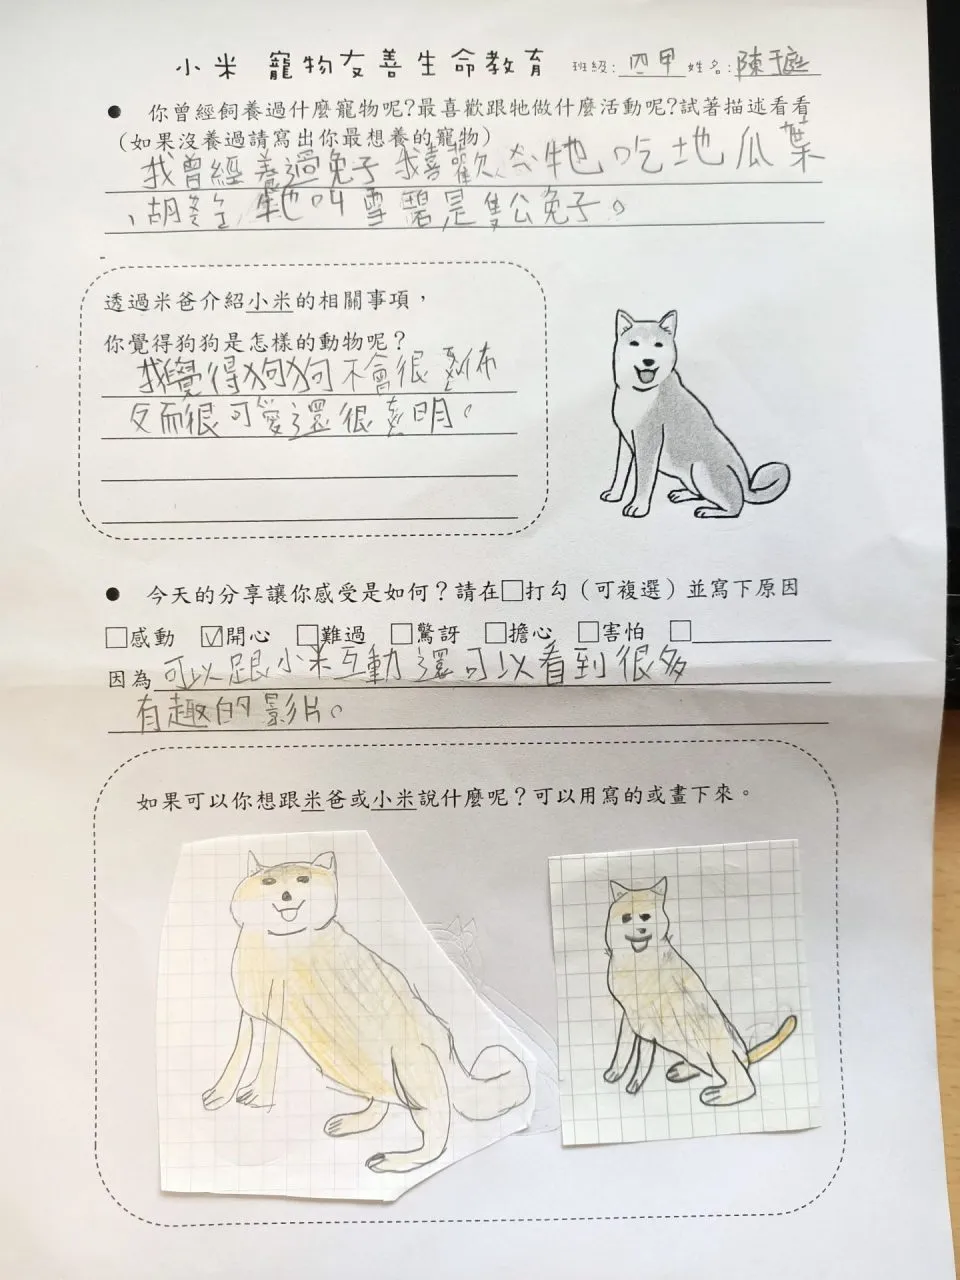 小米 寵物友善生命教育 班級:四甲姓名:陳于庭
● 你曾經飼養過什麼寵物呢?最喜歡跟牠做什麼活動呢?試著描述看看
(如果沒養過請寫出你最想養的寵物)
我曾經養過兔子我喜歡 牠吃地瓜葉
、胡 牠叫雪碧是隻公兔子。
透過米爸介紹小米的相關事項,
你覺得狗狗是怎樣的動物呢?
我覺得狗狗不會很 佈
反而很可愛還很 明。
● 今天的分享讓你感受是如何?請在□打勾(可複選)並寫下原因
□感動 ☑開心 □難過 □驚訝 □擔心 □害怕 □
因為可以跟小米互動還可以看到很多
有趣的影片。
如果可以你想跟米爸或小米說什麼呢?可以用寫的或畫下來。